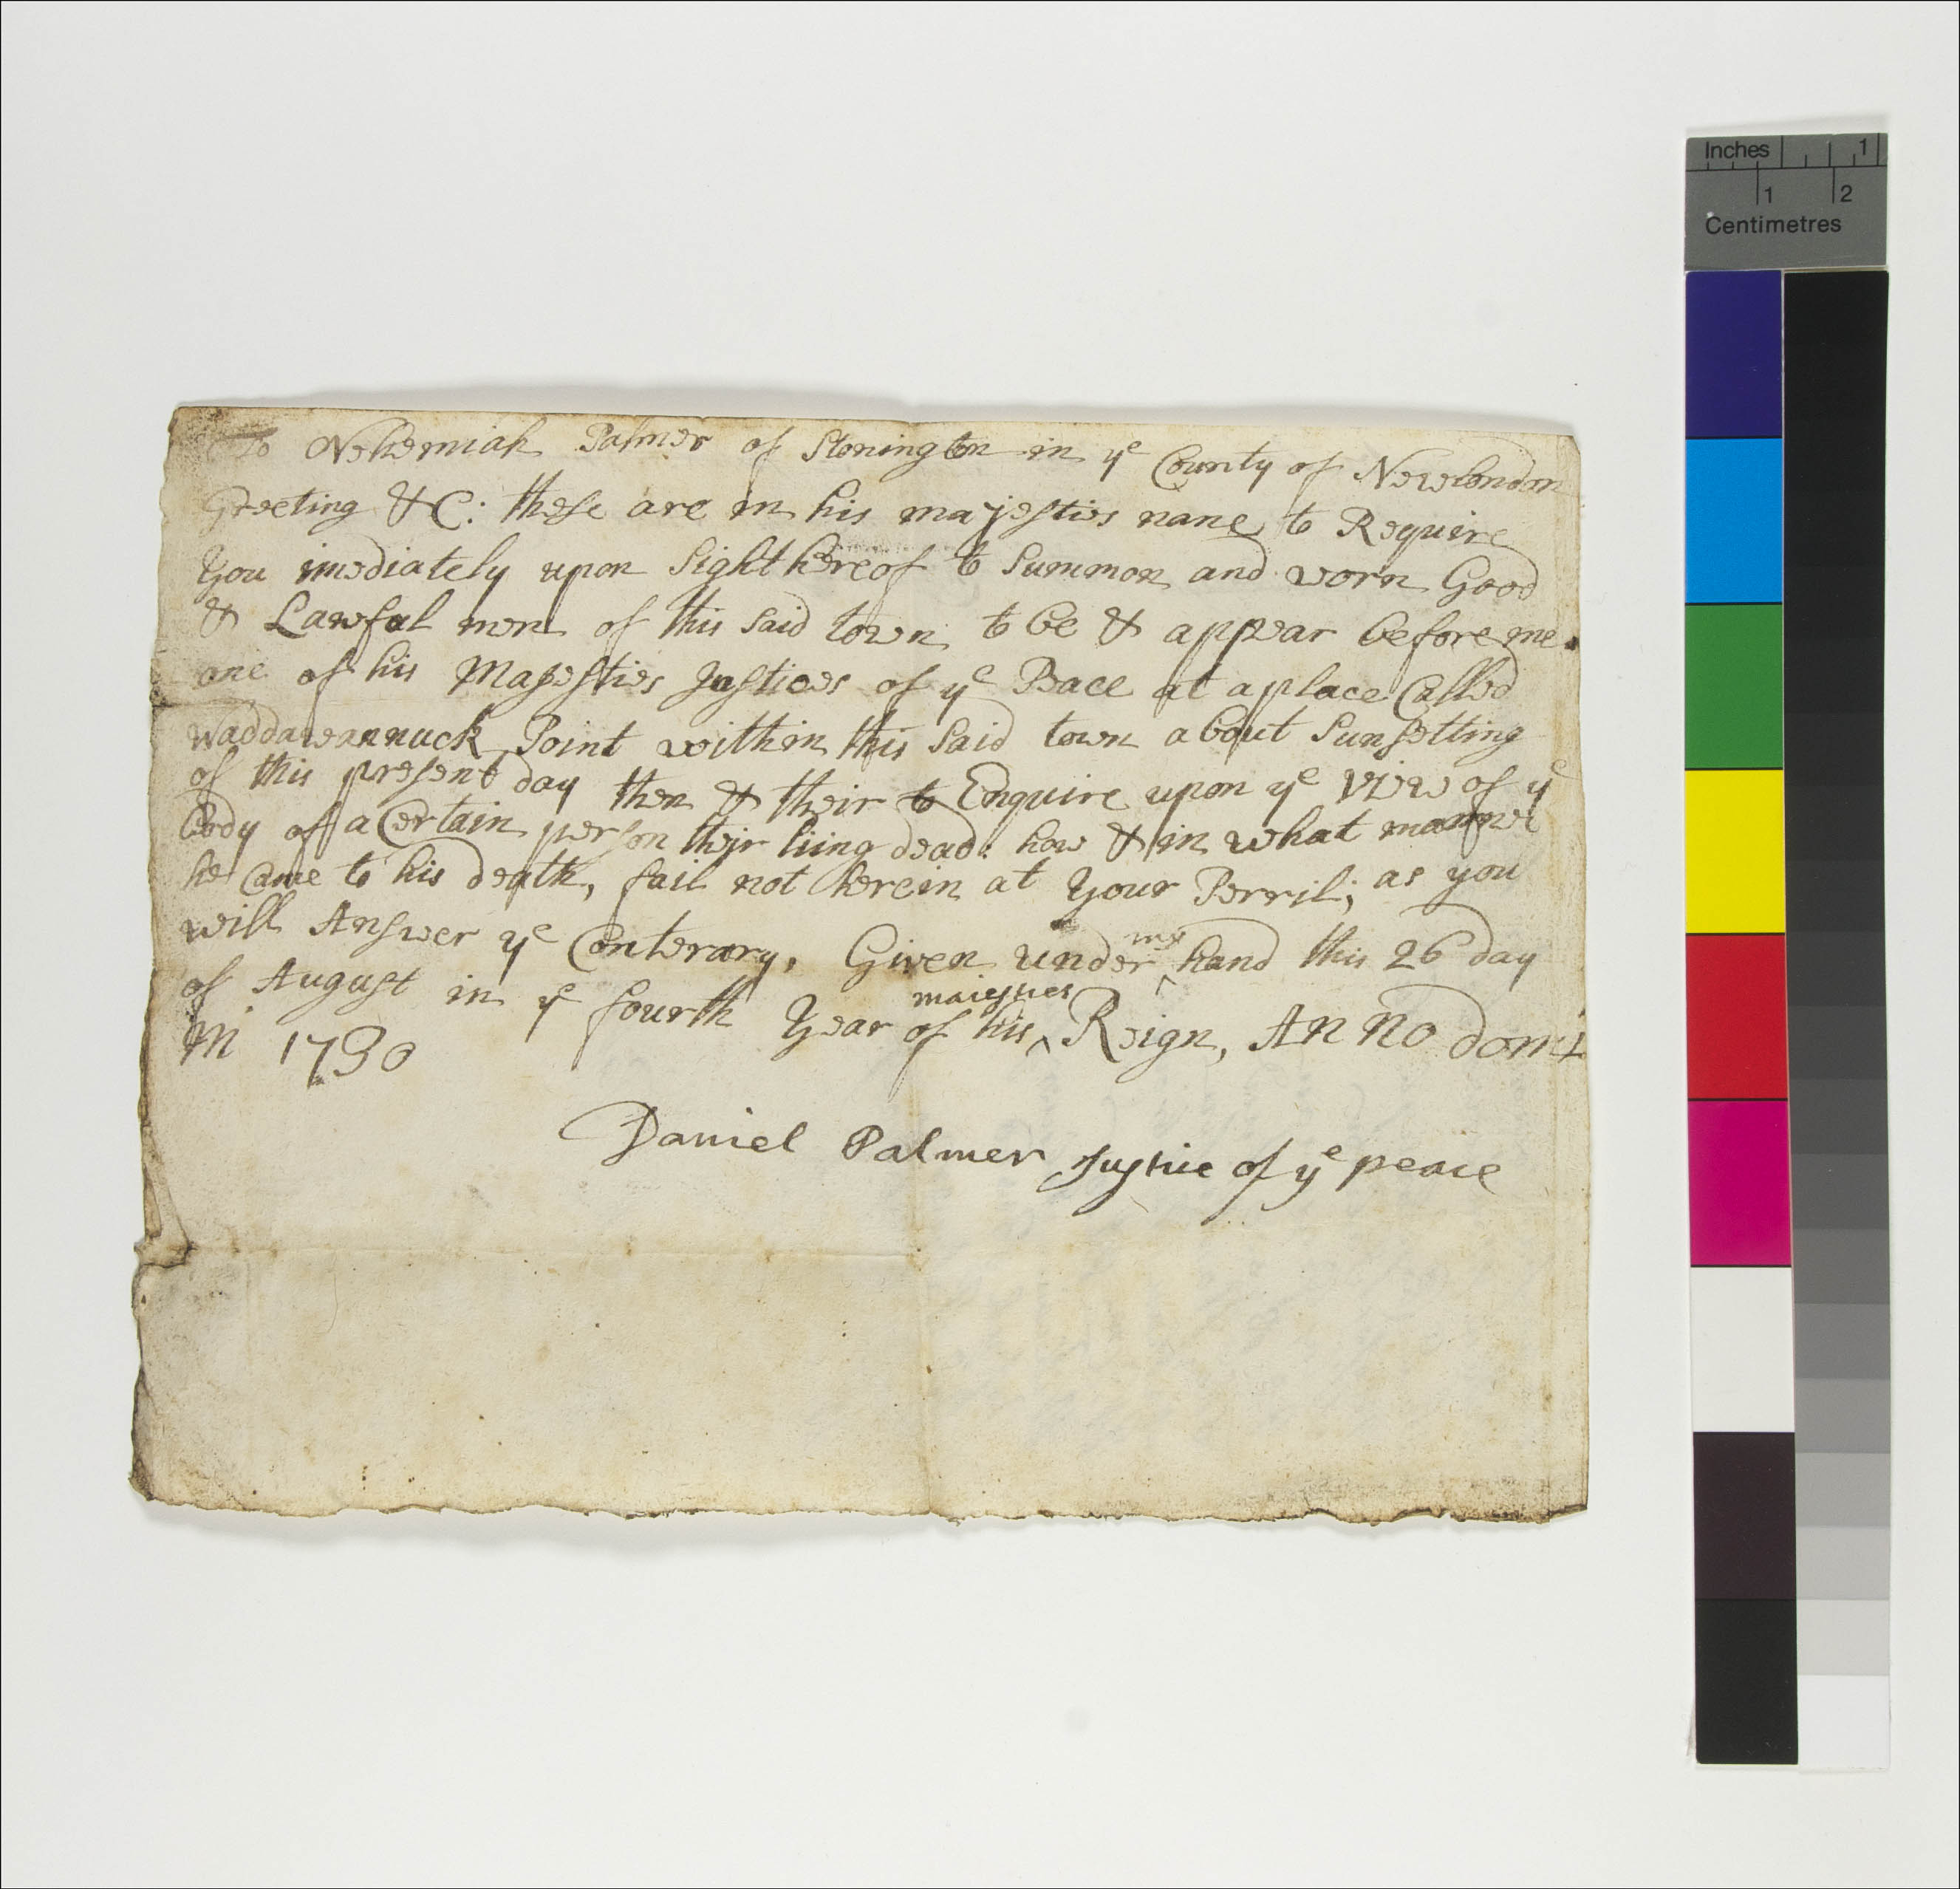 To Nehemiah Palmer of Stonington in ye County of Newlondon
Greeting &C: these are in his majesties name to Require
You imediately upon Sight hereof to Summon and worn Good
& Lawful men of this Said town to be & appear before me
one of his Majesties Justices of ye Pace at a place Called
Waddawannuck Point within this Said town about Sunsetting
of this present day then & their to Enquire upon ye View of ye
body of a Certain person their liing dead: how & in what manner
he Came to his death, fail not herein at Your Perril; as you
will Answer ye Conterary, Given under my hand this 26 day
of August in ye fourth Year of his maiesties Reign, Anno domi
Ni 1730
Daniel Palmer Justice of ye peace
Inches 1
1 2
Centimetres